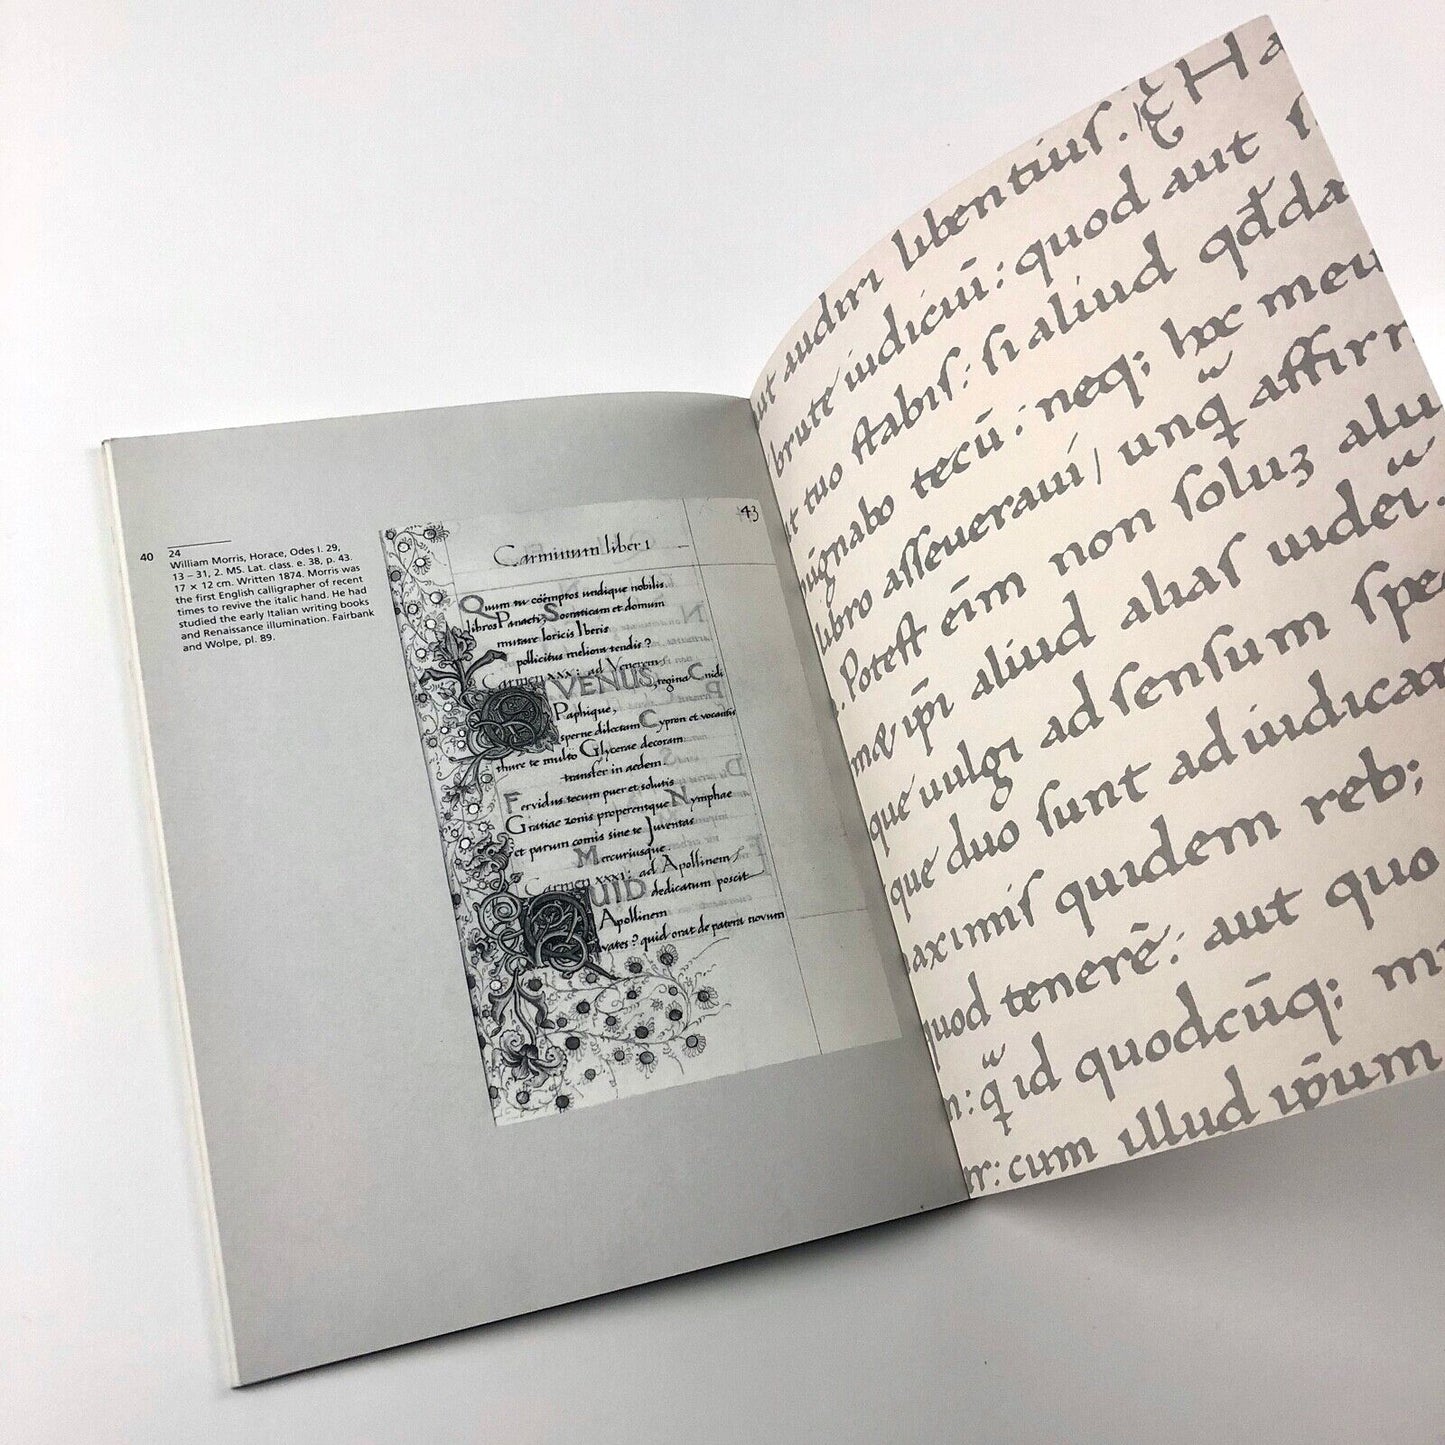 40
24
William Morris, Horace, Odes I. 29,
13 – 31, 2. MS. Lat. class. e. 38, p. 43.
17 × 12 cm. Written 1874. Morris was
the first English calligrapher of recent
times to revive the italic hand. He had
studied the early Italian writing books
and Renaissance illumination. Fairbank
and Wolpe, pl. 89.
43
Carminum liber 1
Quum tu coëmptos undique nobilis
libros Panaeti, Socraticam et domum
mutare loricis Iberis
pollicitus meliora tendis?
Carmen XXX: ad Venerem
O VENUS, regina Cnidi
Paphique,
sperne dilectam Cypron et vocantis
thure te multo Glycerae decoram
transfer in aedem.
Fervidus tecum puer et solutis
Gratiae zonis properentque Nymphae
et parum comis sine te Juventas
Mercuriusque.
Carmen XXXI: ad Apollinem
QUID dedicatum poscit
Apollinem
vates? quid orat de patera novum
ut audiri libentiuſ: Ha
brute iudiciū: quod aut ſ
tuo ſtabiſ: ſi aliud qđ da
nignabo tecū: neq; hoc meu
libro aſſeueraui/ unq̃ affirm
. Poteſt eim̄ non ſoluꝫ alu
ip̄i aliud aliaſ uideri.
que uulgi ad ſenſum ſpe
que duo ſunt ad iudicar
maximiſ quidem reb;
quod tenere: aut quo
: q̃id quodcūq; m
r: cum illud ip̄um